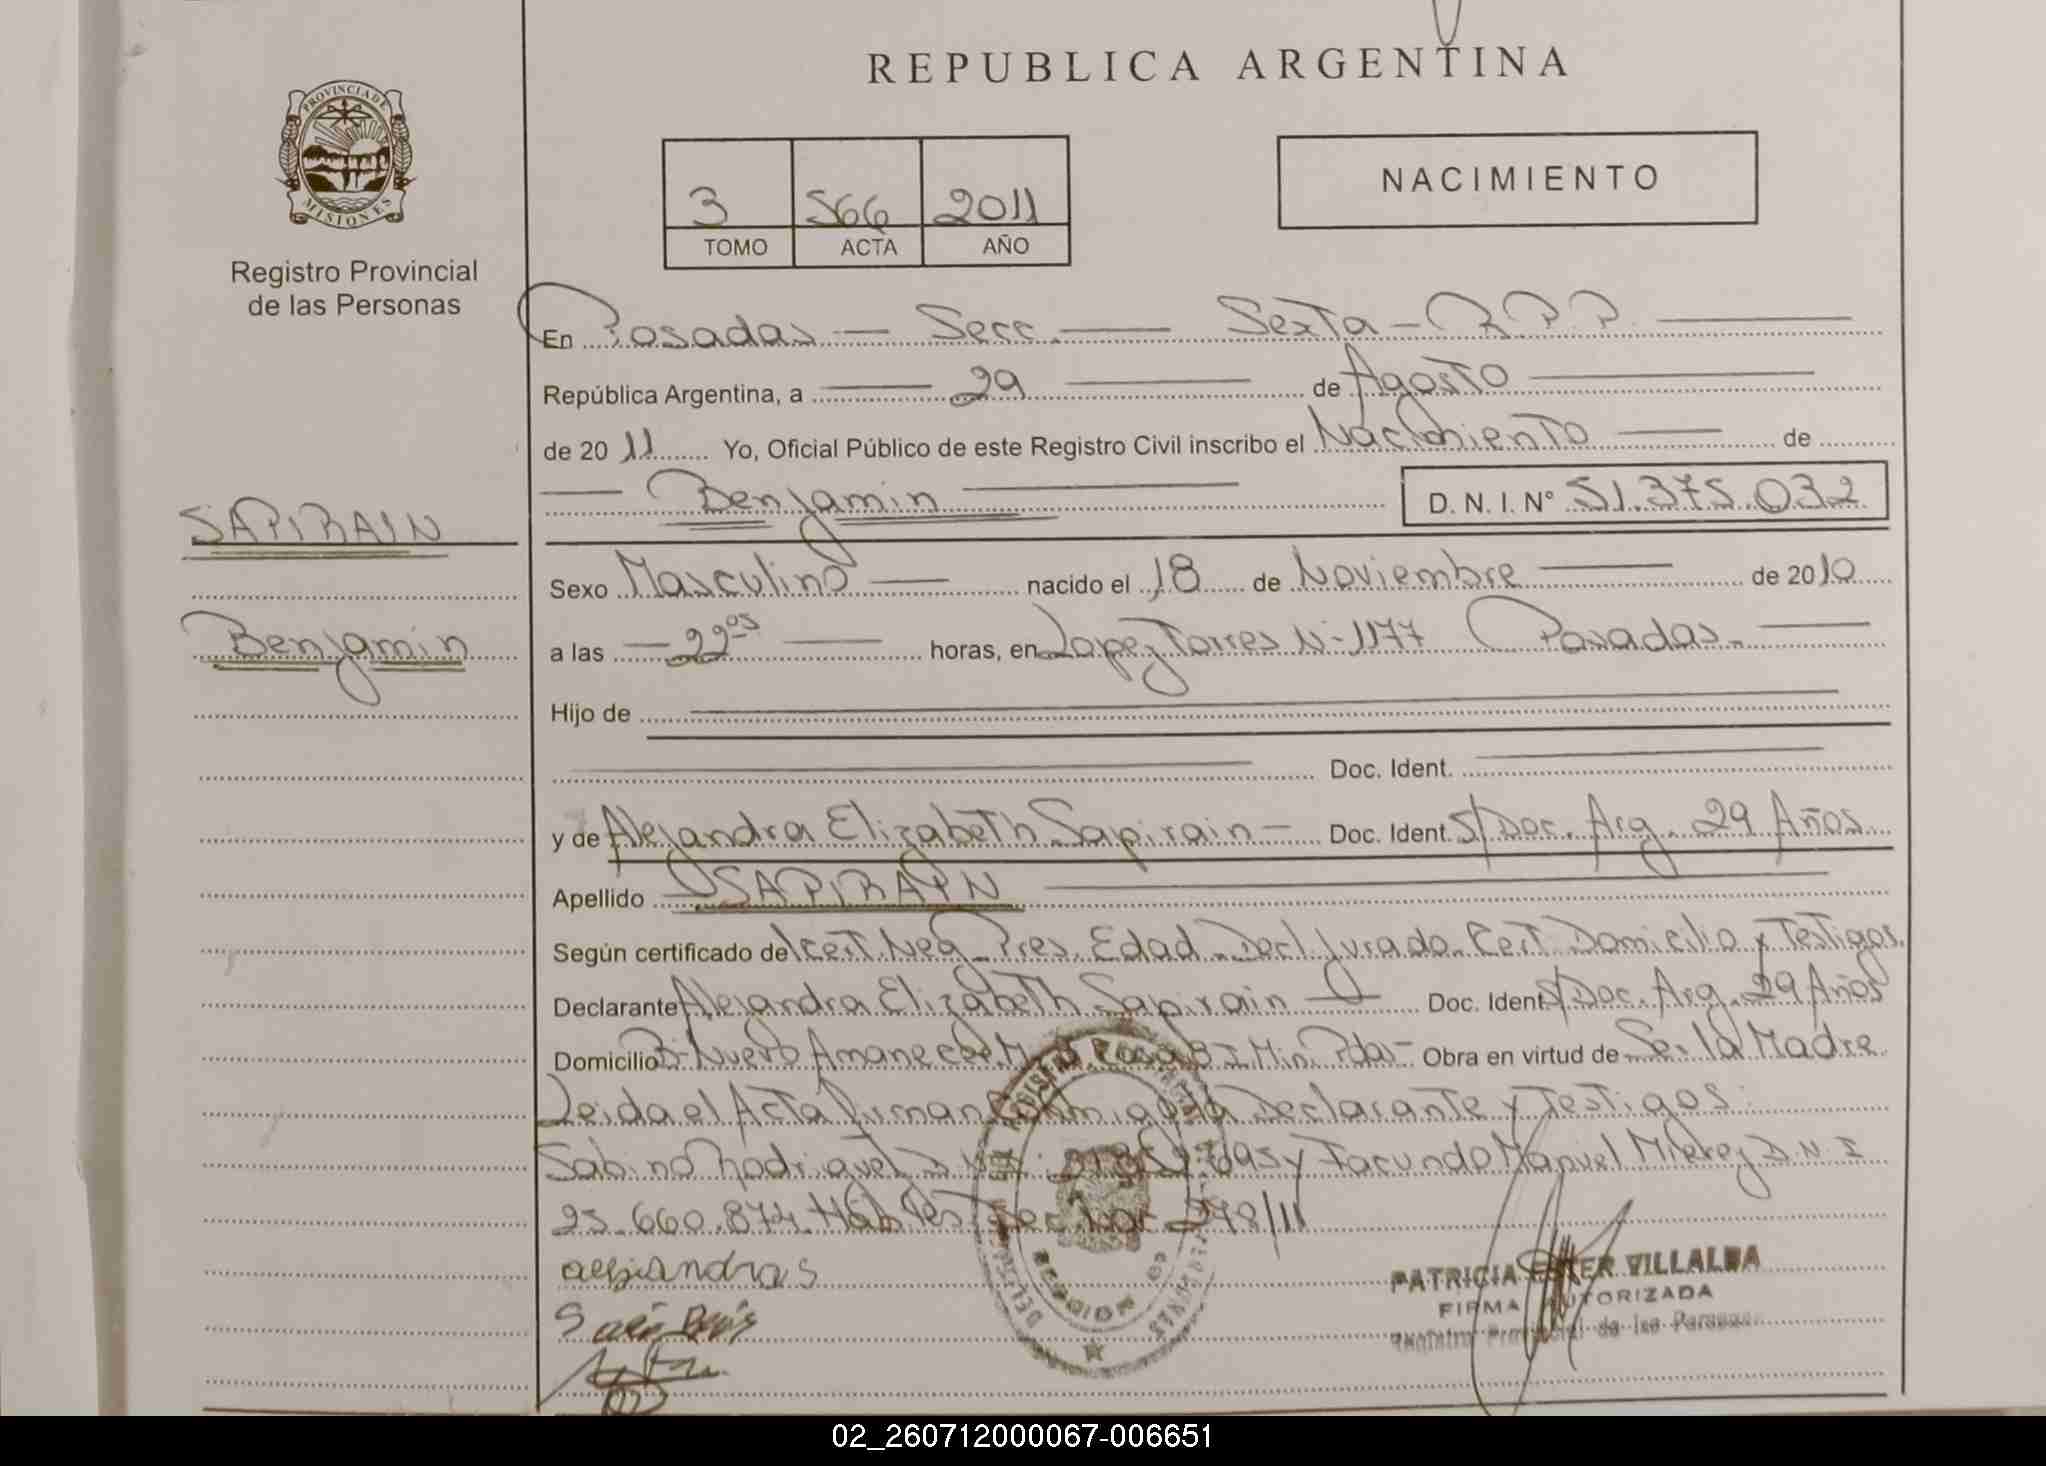 REPUBLICA ARGENTINA
PROVINCIA DE
MISIONES
Registro Provincial
de las Personas
3 566 2011
TOMO ACTA AÑO
NACIMIENTO
En Posadas — Secc. — Sexta - R.P.P.
República Argentina, a 29 de Agosto
de 2011 Yo, Oficial Público de este Registro Civil inscribo el Nacimiento de
Benjamin D. N. I. Nº 51.375.032
SAPIRAIN
Benjamin
Sexo Masculino nacido el 18 de Noviembre de 2010
a las 22 05 horas, en Lopez Torres Nº 1177 Posadas.
Hijo de
Doc. Ident.
y de Alejandra Elizabeth Sapirain Doc. Ident. S/Doc. Arg. 29 Años
Apellido SAPIRAIN
Según certificado de Cert. Neg. Pres. Edad. Decl. Jurada. Cert. Domicilio y Testigos.
Declarante Alejandra Elizabeth Sapirain Doc. Ident S/Doc. Arg. 29 Años
Domicilio Bº Nuevo Amanecer Obra en virtud de Ser la Madre
Leida el Acta Firman Conmigo la Declarante y Testigos:
Sabino y Facundo Manuel D.N.I
23.660.874 278/11
PATRICIA ESTER VILLALBA
FIRMA AUTORIZADA
Registro Provincial de las Personas
02_260712000067-006651